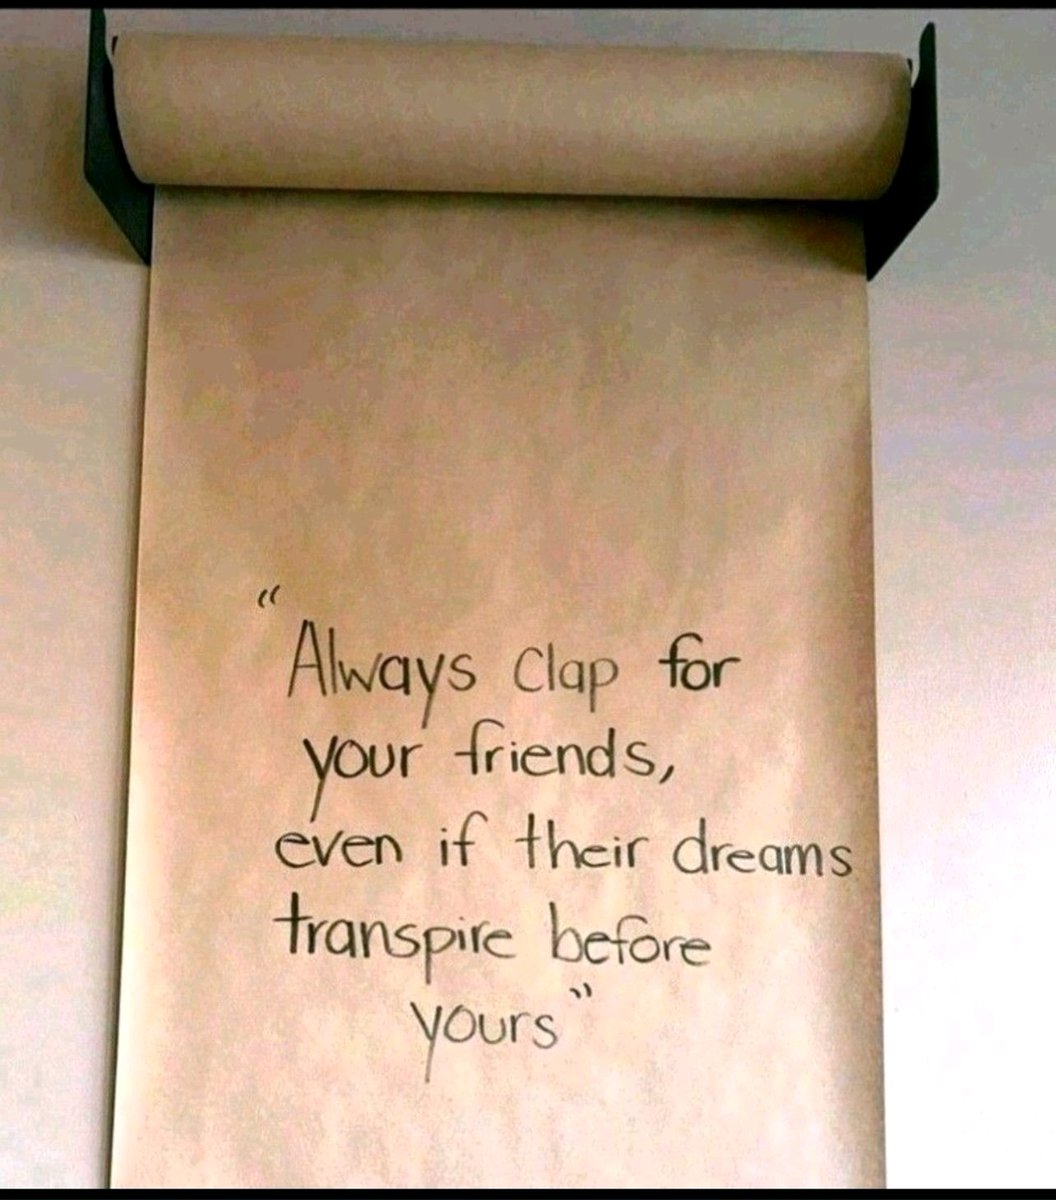 “
Always clap for
your friends,
even if their dreams
transpire before
yours”